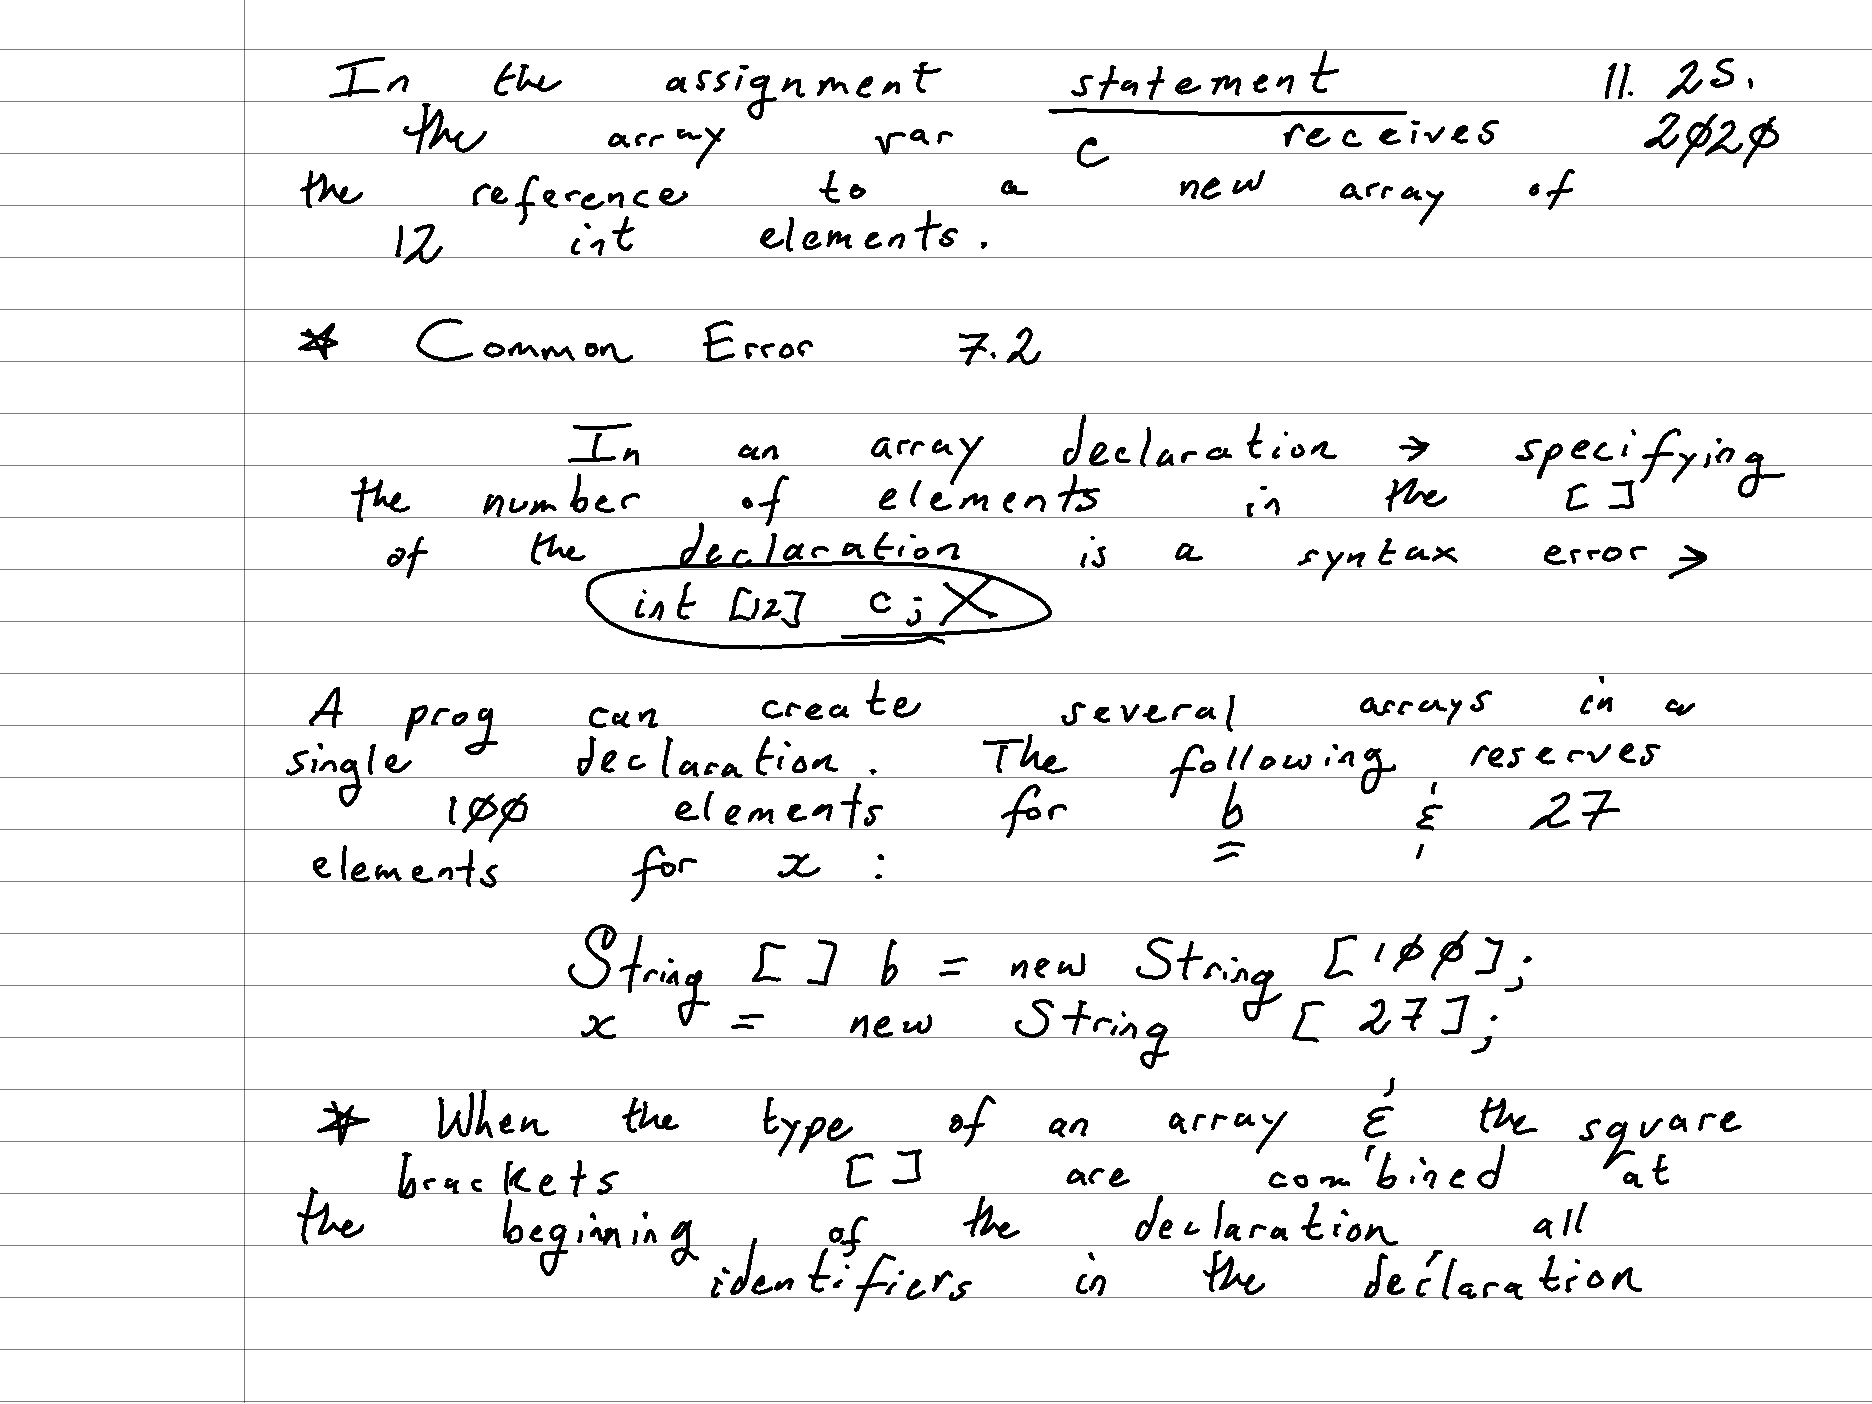 In the assignment statement 11. 25.
the array var c receives 2020
the reference to a new array of
12 int elements.
* Common Error 7.2
In an array declaration → specifying
the number of elements in the []
of the declaration is a syntax error >
int [12] c; X
A prog can create several arrays in a
single declaration. The following reserves
100 elements for b & 27
elements for x :
String [ ] b = new String [100];
x = new String [ 27];
* When the type of an array & the square
brackets [] are combined at
the beginning of the declaration all
identifiers in the declaration